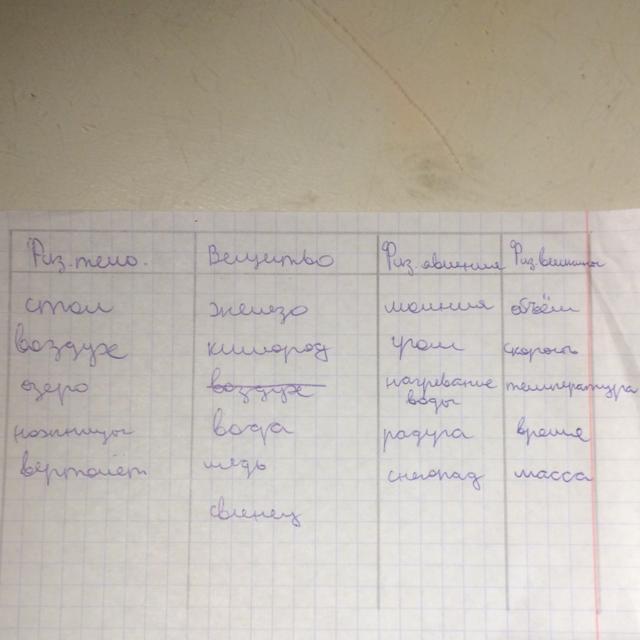 Физ. тело. Вещество Физ. явления Физ величины
стол железо молния объём
воздух кислород гром скорость
озеро воздух нагревание воды температура
ножницы вода радуга время
вертолёт медь снегопад масса
свинец